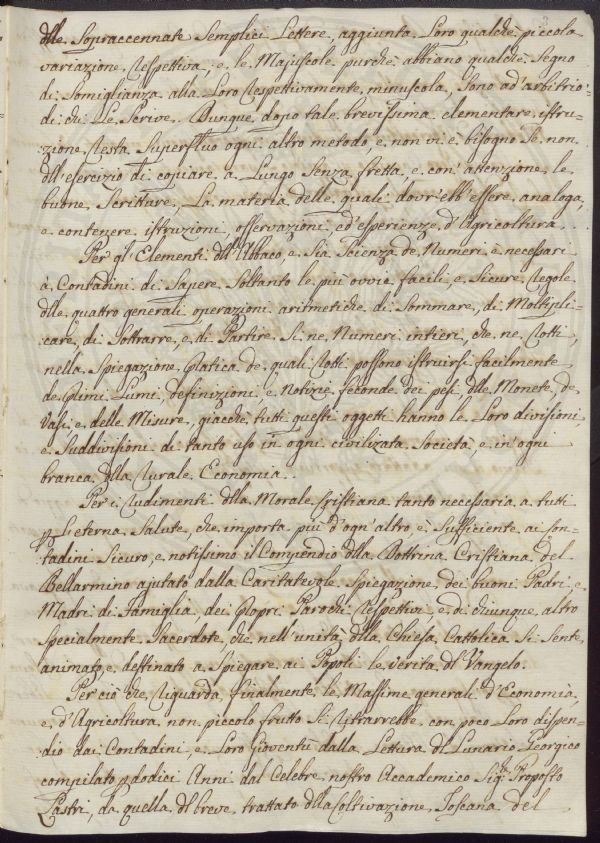 dlle Sopraccennate Semplici Lettere, aggiunta Loro qualche piccola
variazione respettiva, e le Majuscole purchè abbiano qualche Segno
di Somiglianza alla Loro respettivamente minuscola, Sono ad'arbitrio
di chi Le Scrive. Dunque, dopo tale brevissima elementare istru=
zione resta Superfluo ogni altro metodo, e non vi è bisogno Se non
dll'esercizio di copiare a Lungo Senza fretta, e con' attenzione le
buone Scritture. La materia delle quali dovr'ebb'essere analoga,
e contenere istruzioni, osservazioni, ed'esperienze d'Agricoltura.
Per gl'Elementi dll'Abbaco, e Sia Scienza de Numeri è necessari
à Contadini di Sapere Soltanto le più ovvie facili, e Sicure regole
dlle quattro generali operazioni aritmetiche di Sommare, di Moltipli=
care, di Sottrarre, e di Partire Si ne Numeri intieri, che ne rotti,
nella Spiegazione pratica de quali rotti possono istruirsi facilmente
de primi Lumi, definizioni, e Notizie feconde dei pesi, dlle Monete, de
Vasi, e delle Misure, giacchè tutti questi oggetti hanno le Loro divisioni,
e Suddivisioni di tanto uso in ogni civilizata Società, e in'ogni
branca dlla rurale Economia.
Per i rudimenti dlla Morale Cristiana tanto necessaria a tutti
p L'eterna Salute, che importa più d'ogn'altro è Sufficiente ai Con=
tadini Sicuro, e notissimo il Compendio dlla Dottrina Cristiana del
Bellarmino ajutato dalla Caritatevole Spiegazione dei buoni Padri e
Madri di Famiglia dei propri Parochi respettivi e di chiunque altro
Specialmente Sacerdote, che nell'unità dlla Chiesa Cattolica Si Sente
animato, e destinato a Spiegare ai Popoli le verità dl Vangelo.
Per ciò che riguarda finalmente le Massime generali d'Economia,
e d'Agricoltura non piccolo frutto Si ritrarrebbe con poco Loro dispen=
dio dai Contadini, e Loro Gioventù dalla Lettura dl Lunario Georgico
compilato p dodici Anni dal Celebre nostro Accademico Sigr. Proposto
Lastri, da quella dl breve trattato dlla Coltivazione Toscana del